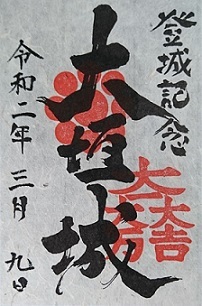 登城記念
大垣城
大一大万大吉
令和二年三月九日